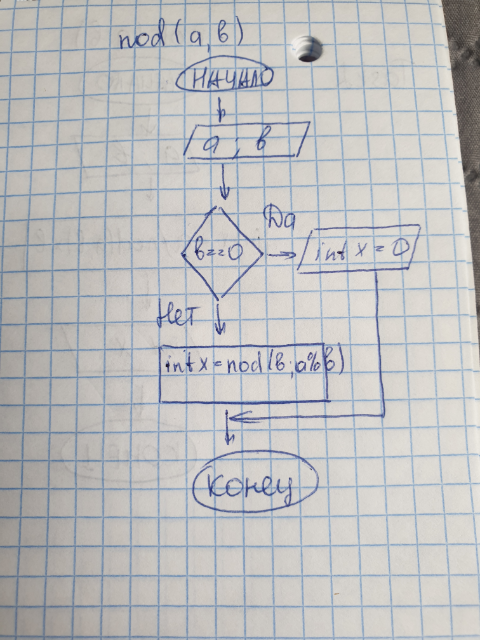 nod(a,b)
НАЧАЛО
a ; b
Да
b==0
int x = 0
Нет
int x = nod(b;a%b)
Конец